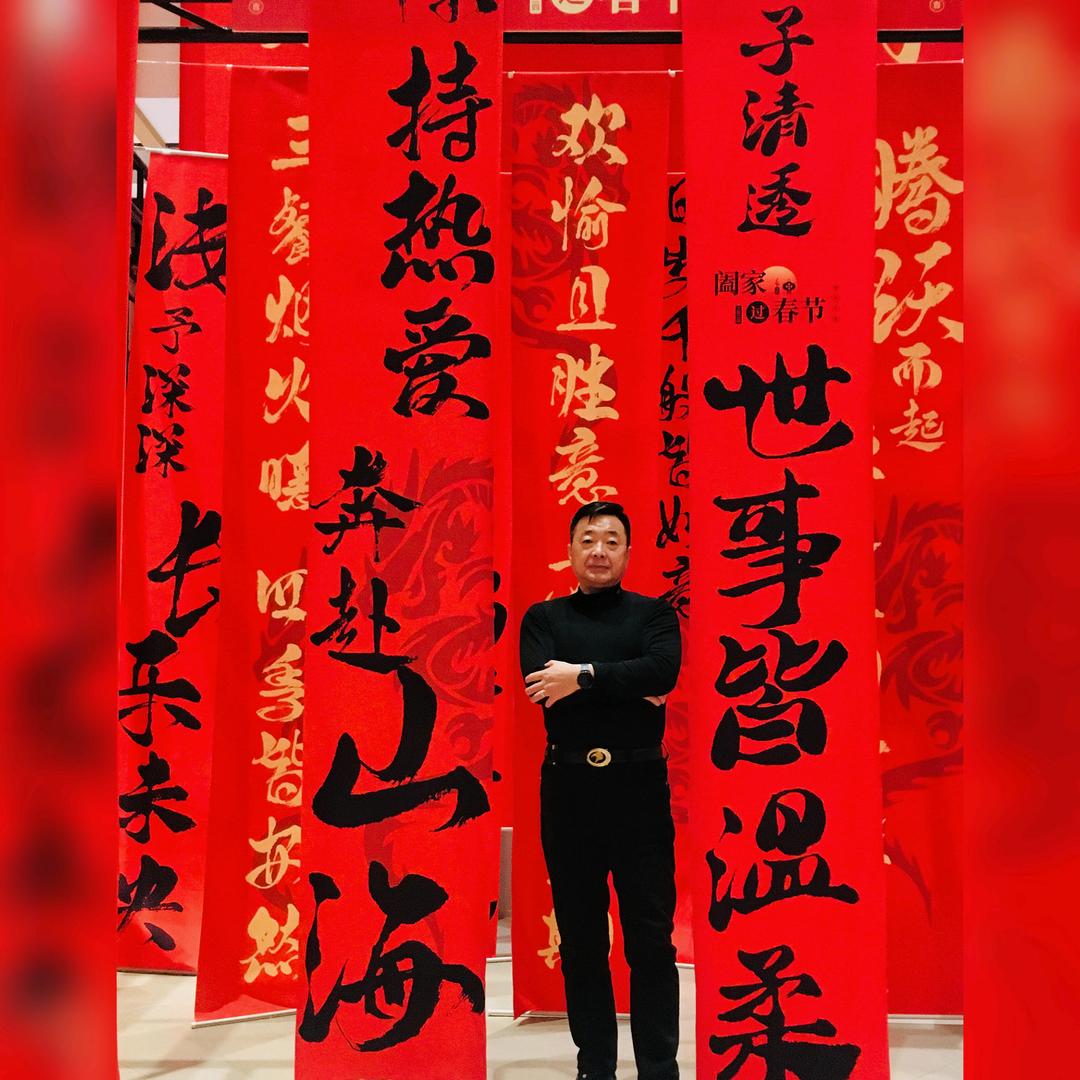 浅予深深
长乐未央
三餐烟火暖
四季皆安然
持热爱
奔赴山海
欢愉且胜意
千般皆如意
子清透
阖家
过春节
世事皆温柔
腾跃而起